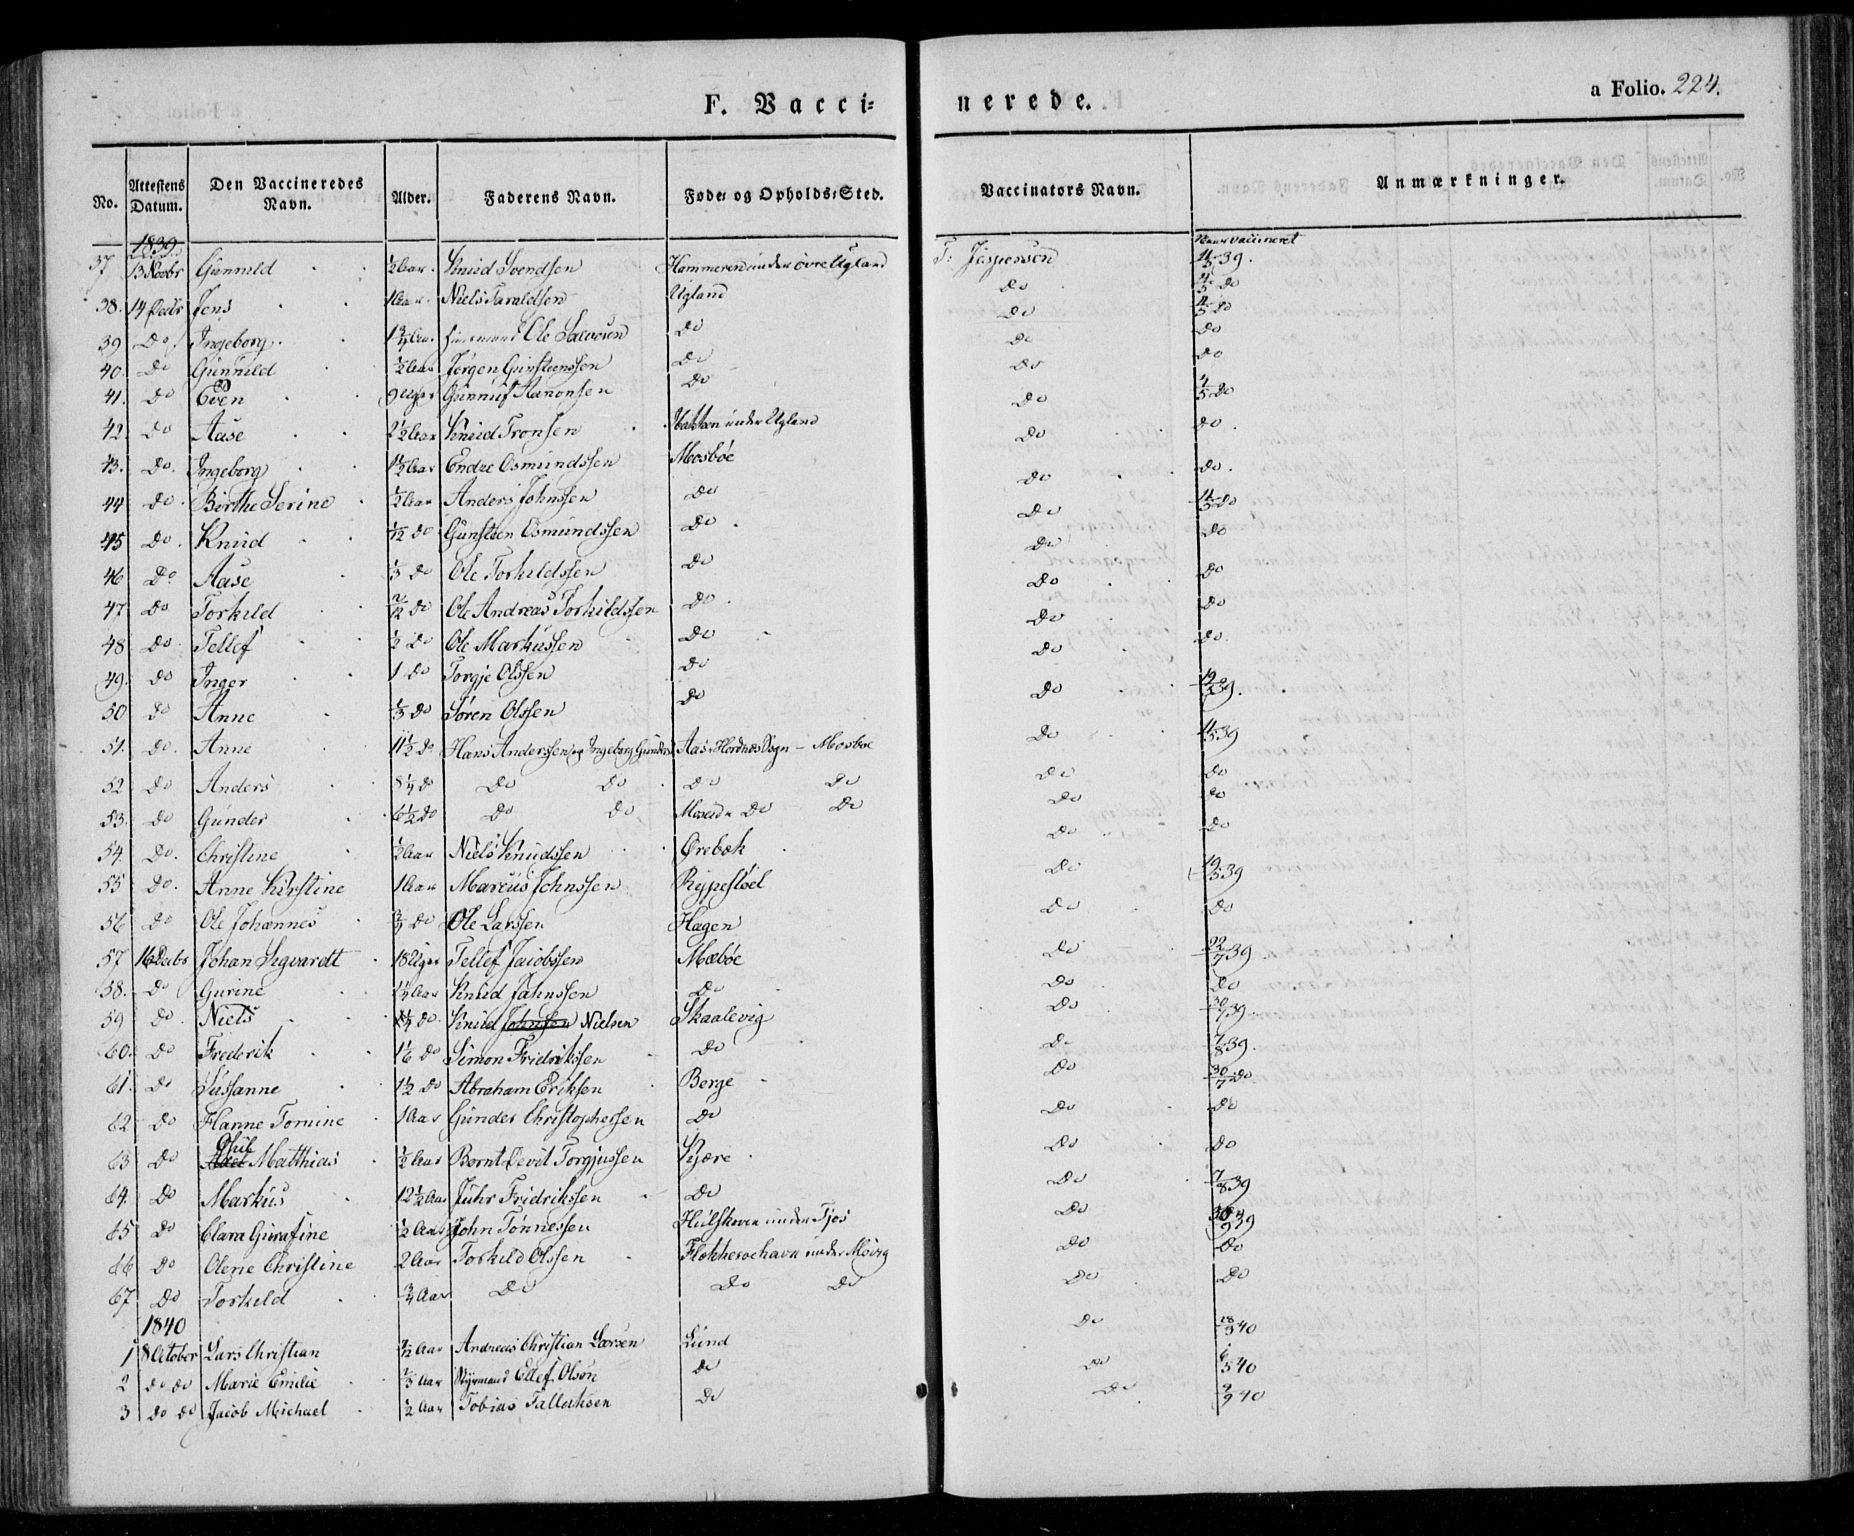 F. Vacci-nerede.
a Folio. 224.
No. Attestens Datum. Den Vaccineredes Navn. Alder. Faderens Navn. Føde- og Opholds-Sted. Vaccinators Navn. Anmærkninger.
1839
37 13 Novbr Gunnild ½ Aar. Knud Svendsen Hammeren under øvre Ugland T. Jespersen vaccineret 39.
38. 14 Decbr Jens 1 Aar. Niels Taraldsen Ugland Do Do
39 Do Ingeborg Ole Do Do Do
40. Do Gunnild ½ Aar Jørgen Gunsteinssen Do Do Do
41. Do Even 9 Uger Gunnuf Aanonsen Do Do Do
42. Do Aase 2½ Aar Knud Tronsen Bakken under Ugland Do Do.
43. Do. Ingeborg 1½ Aar Endre Osmundssen Mosbøe Do Do.
44 Do. Berthe Serine ½ Aar Anders Johnssen Do Do Do
45 Do. Knud Do Gunsten Osmundssen Do. Do Do
46 Do Aase ⅓ Do Ole Torkildssen Do Do Do
47 Do Torkild Do Ole Andreas Torkildssen Do. Do Do
48 Do Tellef ½ Do Ole Markussen Do Do Do.
49. Do Inger 1 Do Torgje Olssen Do Do 39.
50 Do Anne ⅓ Do Søren Olssen Do
51. Do. Anne 11½ Do Hans Anderssen og Ingeborg Aas Sogn - Mosbøe Do 39
52 Do Anders 8¼ Do Do Do Do Do Do Do
53. Do Gunder 6½ Do Do Do Do Do Do Do
54. Do. Christine ½ Aar Niels Knudssen Ørebæk Do Do
55 Do. Anne Kirstine 1 Aar Marcus Johnssen Rypestøel Do 39
56 Do Ole Johannes Do Ole Larssen Hagen Do Do
57 16 Decbr Johan Sigvardt 18 Uger Tellef Jacobssen Mæbøe Do 22/7 39.
58. Do Gurine Aar Knud Jahnssen Do Do Do
59 Do. Niels Do Knud Johnssen Nielsen Skaalevig Do 30/7 39.
60. Do Frederik 1⅙ Do Simon Fridrikssen Do Do 7/8 39.
61. Do Sussanne 1½ Do Abraham Eriksen Berge Do 30/7 Do
62 Do Hanne Tomine 1 Aar Gunder Christophersen Do Do Do
63 Do Matthias ½ Aar Bernt Devit Torgjussen Kjære Do Do
64. Do Markus 12½ Aar Juhr Fridrikssen Do Do 7/8 39
65 Do Clara Gurafine ½ Aar John Tønnessen under Tjos Do 39
66 Do Olene Christine 2 Aar Torkild Olssen Flekkerøehavn under Møvig Do Do
67 Do Torkild ¾ Aar Do Do Do Do Do
1840
1 8 October Lars Christian Aar Andreas Christian Larsen Lund Do 40
2 Do Do Marie Emilie Aar Styrmand Ellef Olsøn Do Do 40
3 Do Do Jacob Michael ½ Aar Tobias Tallaksen Do Do 40